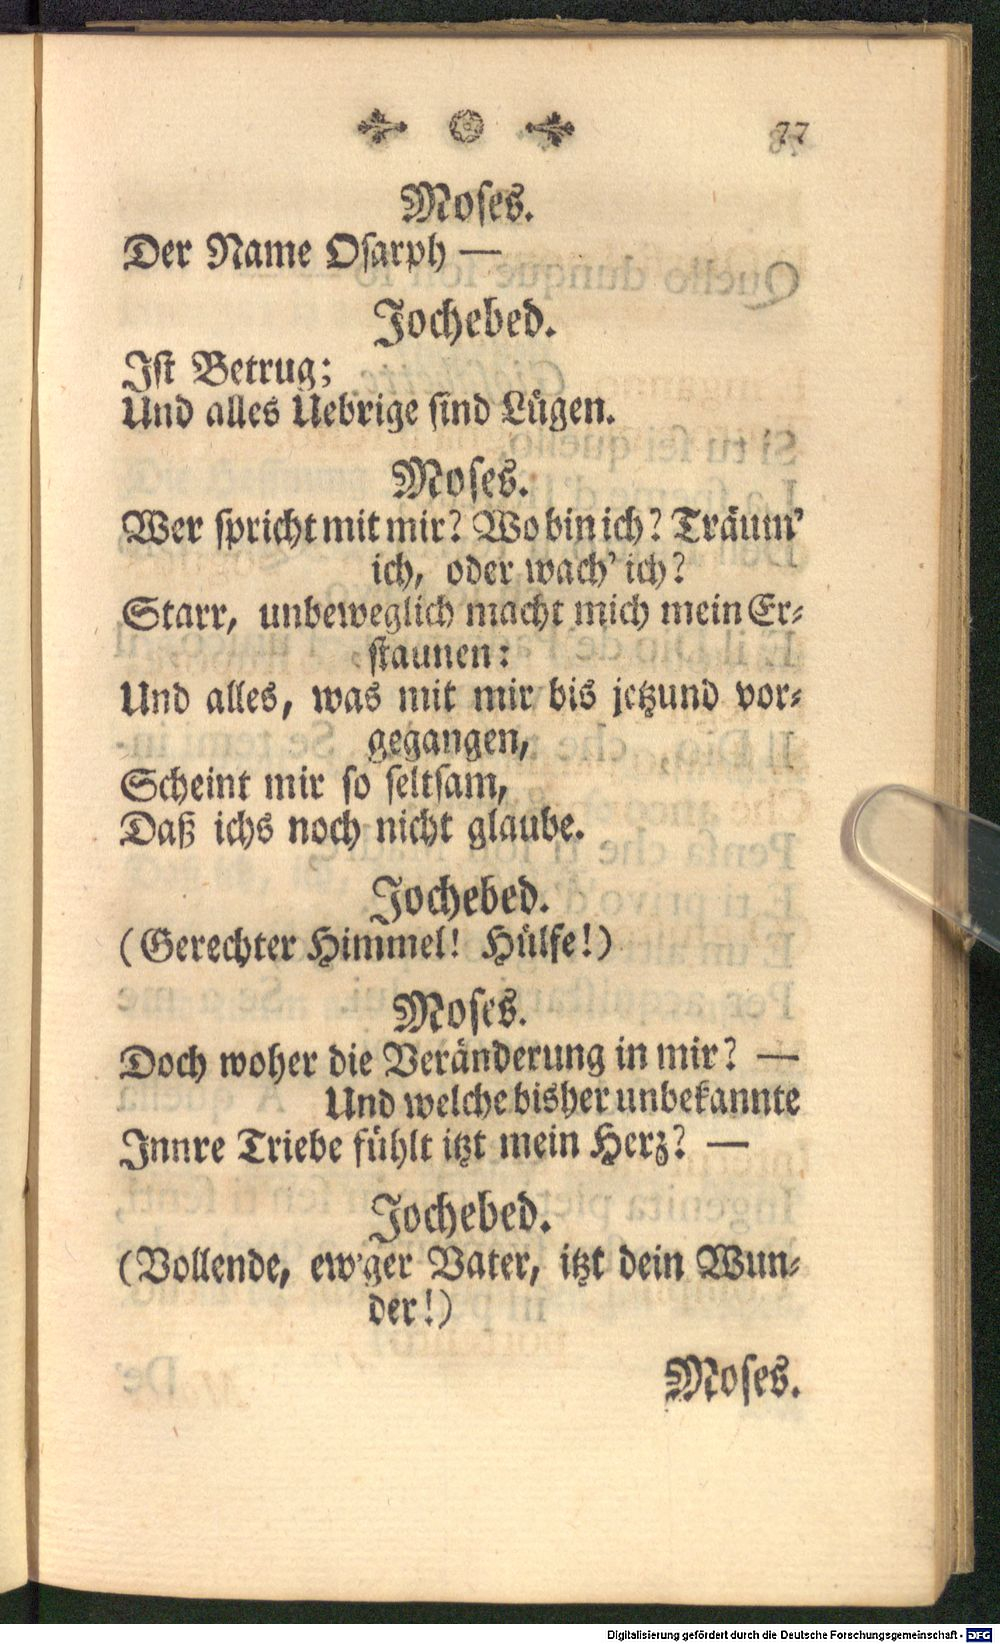 77
Moſes.
Der Name Oſarph —
Jochebed.
Iſt Betrug;
Und alles Uebrige ſind Lügen.
Moſes.
Wer ſpricht mit mir? Wo bin ich? Träum'
ich, oder wach' ich?
Starr, unbeweglich macht mich mein Er⸗
ſtaunen:
Und alles, was mit mir bis jetzund vor⸗
gegangen,
Scheint mir ſo ſeltſam,
Daß ichs noch nicht glaube.
Jochebed.
(Gerechter Himmel! Hülfe!)
Moſes.
Doch woher die Veränderung in mir? —
Und welche bisher unbekannte
Innre Triebe fühlt itzt mein Herz? —
Jochebed.
(Vollende, ew'ger Vater, itzt dein Wun⸗
der!)
Moſes.
Digitalisierung gefördert durch die Deutsche Forschungsgemeinschaft - DFG